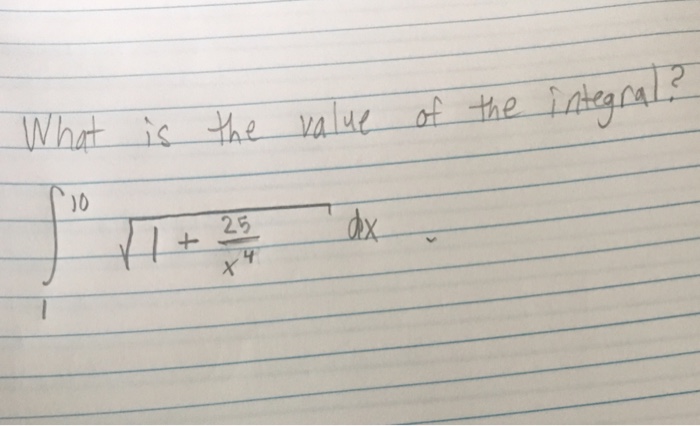 What is the value of the integral?
∫₁¹⁰ √(1 + 25/x⁴) dx .